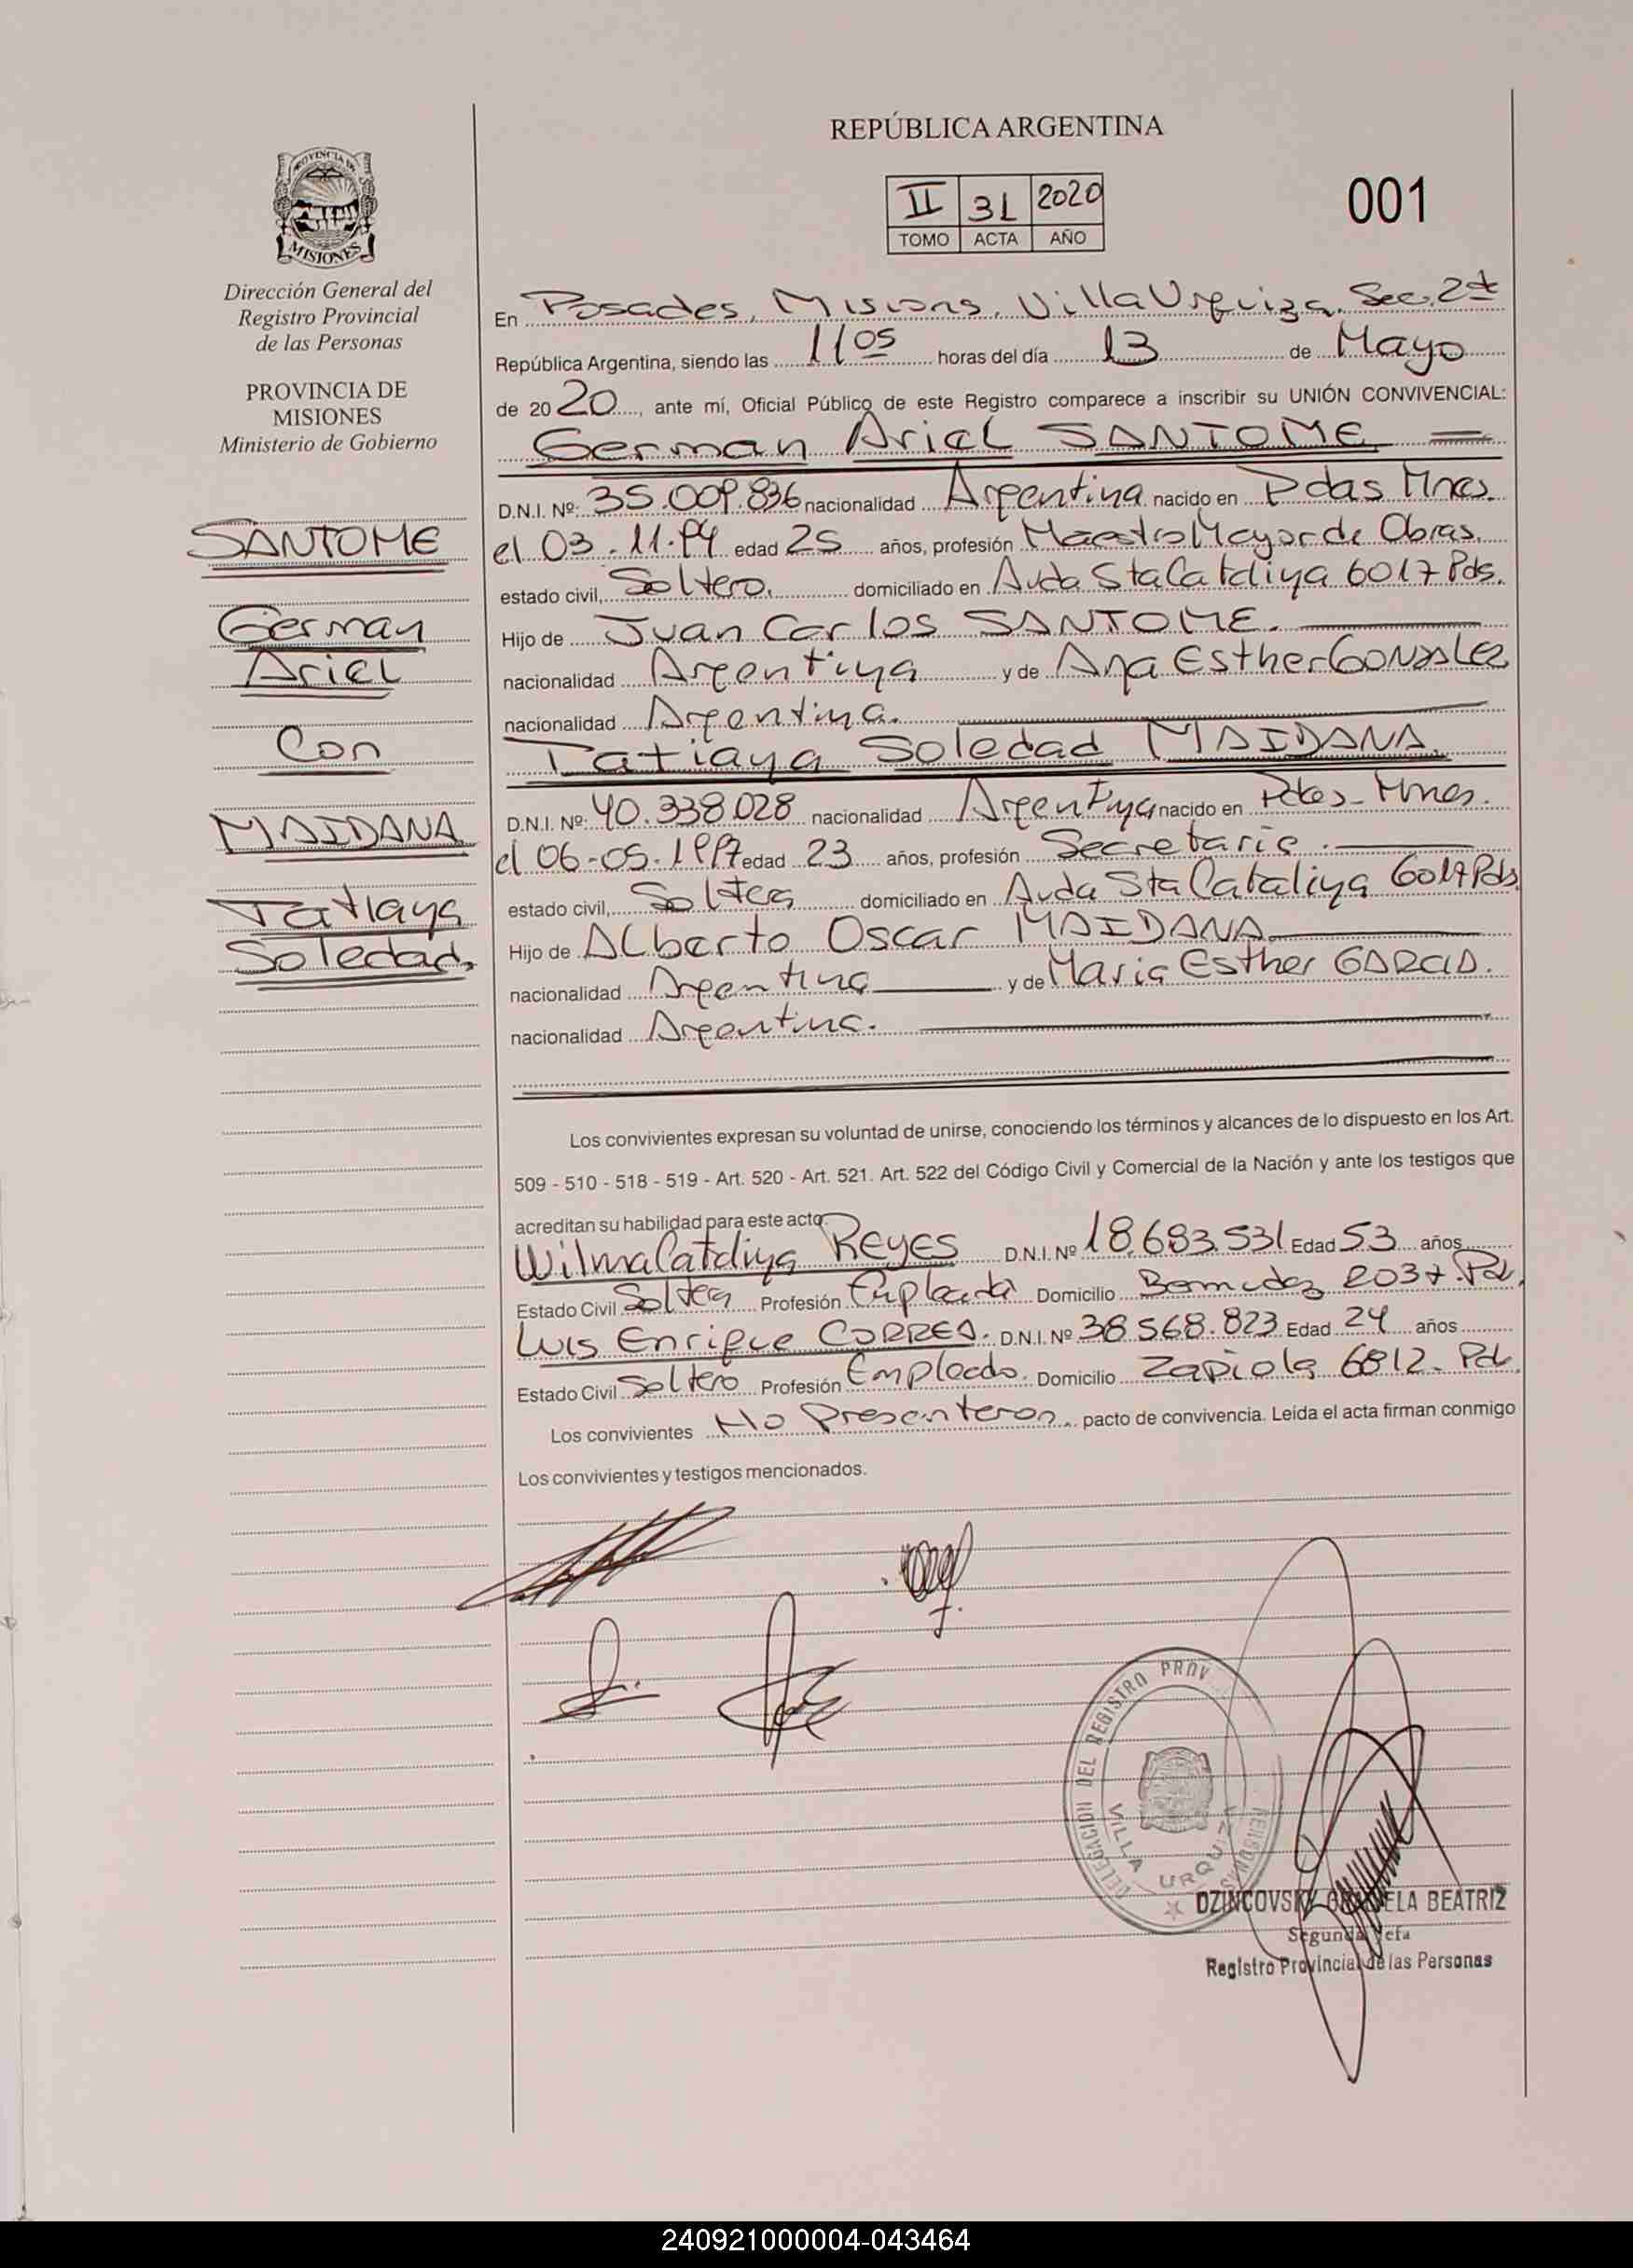 REPÚBLICA ARGENTINA
II 31 2020
TOMO ACTA AÑO
001
PROVINCIA DE
MISIONES
Dirección General del
Registro Provincial
de las Personas
PROVINCIA DE
MISIONES
Ministerio de Gobierno
SANTOME
German
Ariel
Con
MAIDANA
Tatiana
Soledad
En Posadas, Misions, Villa Urquiza, Sec. 2ª
República Argentina, siendo las 11 05 horas del día 13 de Mayo
de 20 20, ante mí, Oficial Público de este Registro comparece a inscribir su UNIÓN CONVIVENCIAL:
German Ariel SANTOME
D.N.I. Nº: 35.009.836 nacionalidad Argentina nacido en Pdas Mnes.
el 03.11.94 edad 25 años, profesión Maestro Mayor de Obras.
estado civil, Soltero. domiciliado en Avda Sta Catalina 6017 Pds.
Hijo de Juan Carlos SANTOME.
nacionalidad Argentina y de Ana Esther GONZALEZ
nacionalidad Argentina.
Tatiana Soledad MAIDANA
D.N.I. Nº: 40.338.028 nacionalidad Argentina nacido en Pdas- Mnes.
el 06-05-1997 edad 23 años, profesión Secretaria.
estado civil, Soltera domiciliado en Avda Sta Catalina 6017 Pds.
Hijo de Alberto Oscar MAIDANA
nacionalidad Argentina y de Maria Esther GARCIA.
nacionalidad Argentina.
Los convivientes expresan su voluntad de unirse, conociendo los términos y alcances de lo dispuesto en los Art.
509 - 510 - 518 - 519 - Art. 520 - Art. 521. Art. 522 del Código Civil y Comercial de la Nación y ante los testigos que
acreditan su habilidad para este acto:
Wilma Catalina REYES D.N.I. Nº 18.683.531 Edad 53 años
Estado Civil Soltera Profesión Empleada Domicilio Bermudez 2037.Pds.
Luis Enrique CORREA. D.N.I. Nº 38.568.823 Edad 24 años
Estado Civil Soltero Profesión Empleado. Domicilio Zapiola 6812- Pds.
Los convivientes No Presenteron pacto de convivencia. Leida el acta firman conmigo
Los convivientes y testigos mencionados.
DELEGACION DEL REGISTRO PROV
PERSONAS
VILLA URQUIZA
DZINCOVSKY GRACIELA BEATRIZ
Segunda Jefa
Registro Provincial de las Personas
240921000004-043464